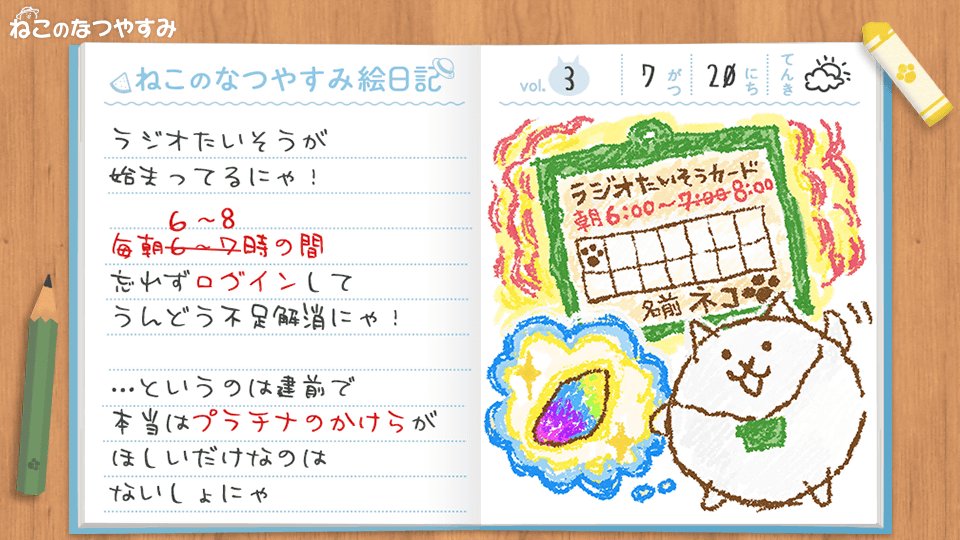 ねこのなつやすみ
ねこのなつやすみ絵日記
ラジオたいそうが
始まってるにゃ！
6～8
毎朝6～7時の間
忘れずログインして
うんどう不足解消にゃ！
…というのは建前で
本当はプラチナのかけらが
ほしいだけなのは
ないしょにゃ
vol. 3
7がつ 20にち てんき
ラジオたいそうカード
朝6:00～7:00 8:00
名前 ネコ